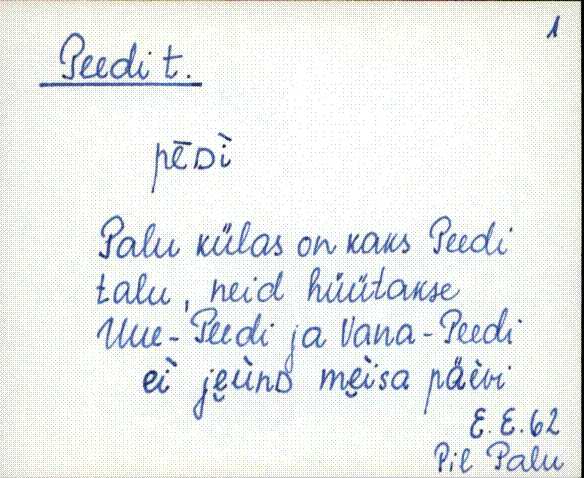 1
Peedi t.
pēᴅì
Palu külas on kaks Peedi
talu, neid hüütakse
Uue-Peedi ja Vana-Peedi
eì je̮ùnᴅ me̮ìsa päèvi
E. E. 62
Pil Palu